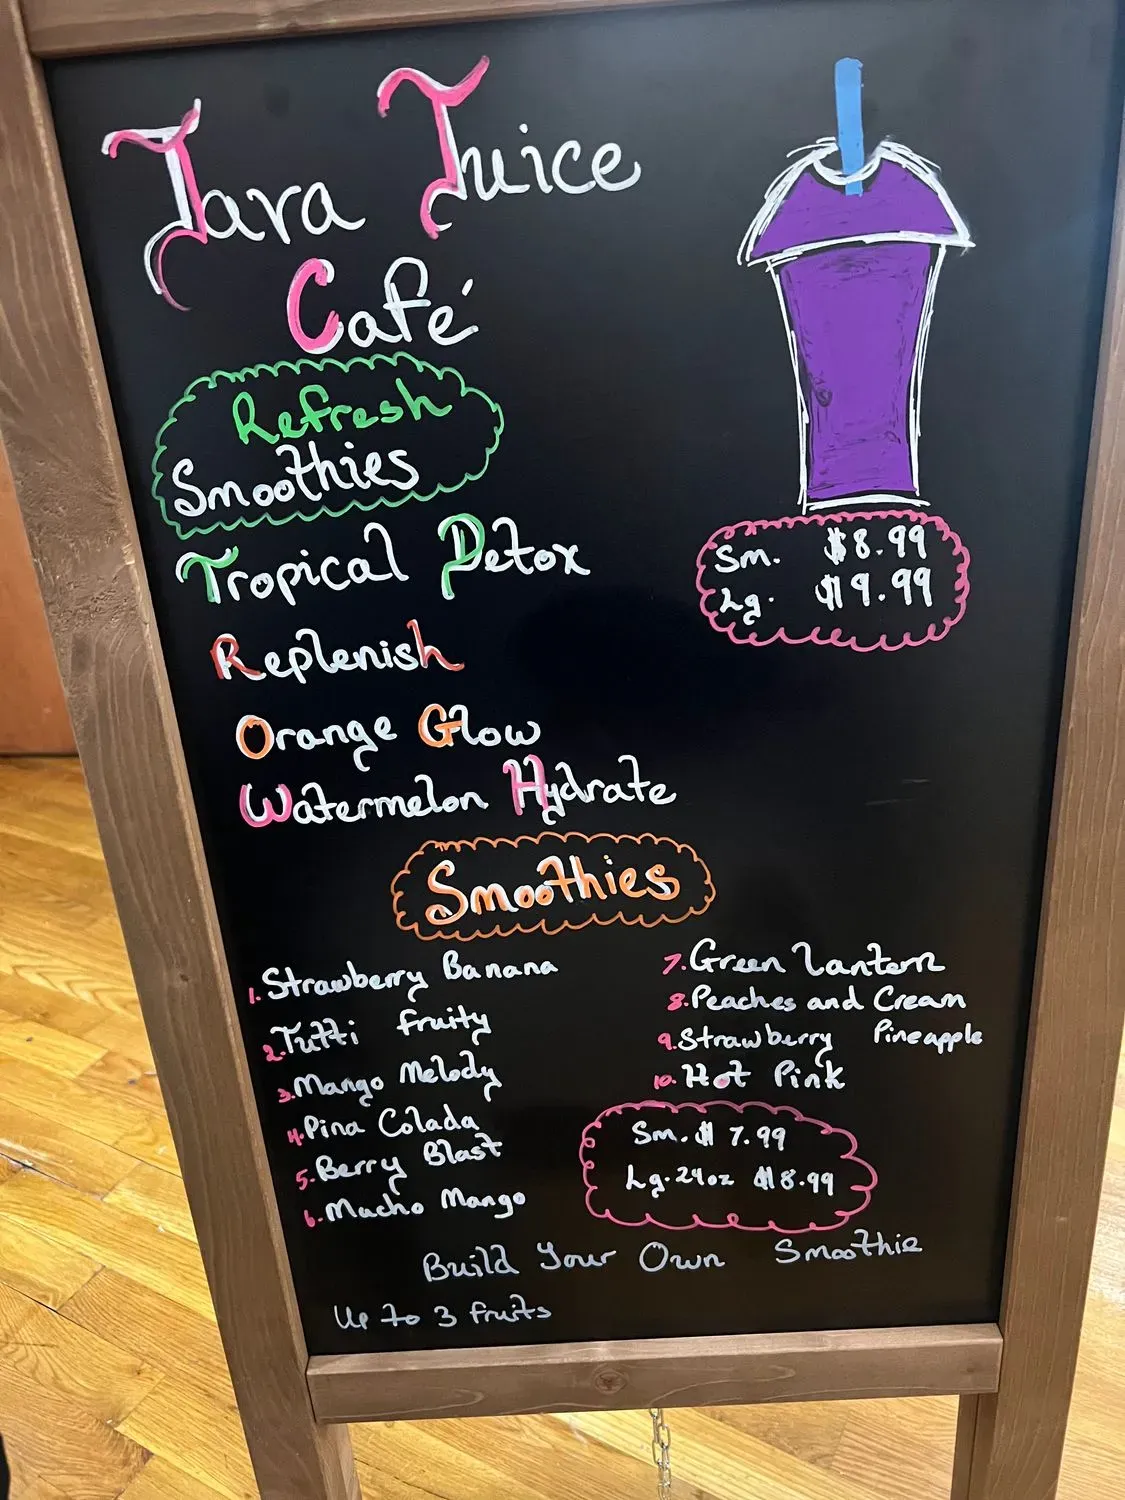 Java Juice
Café
Refresh
Smoothies
Tropical Detox
Replenish
Orange Glow
Watermelon Hydrate
Sm. $8.99
Lg. $9.99
Smoothies
1. Strawberry Banana
2. Tutti fruity
3. Mango Melody
4. Pina Colada
5. Berry Blast
6. Mucho Mango
7. Green Lantern
8. Peaches and Cream
9. Strawberry Pineapple
10. Hot Pink
Sm. $ 7.99
Lg. 24oz $8.99
Build Your Own Smoothie
Up to 3 fruits